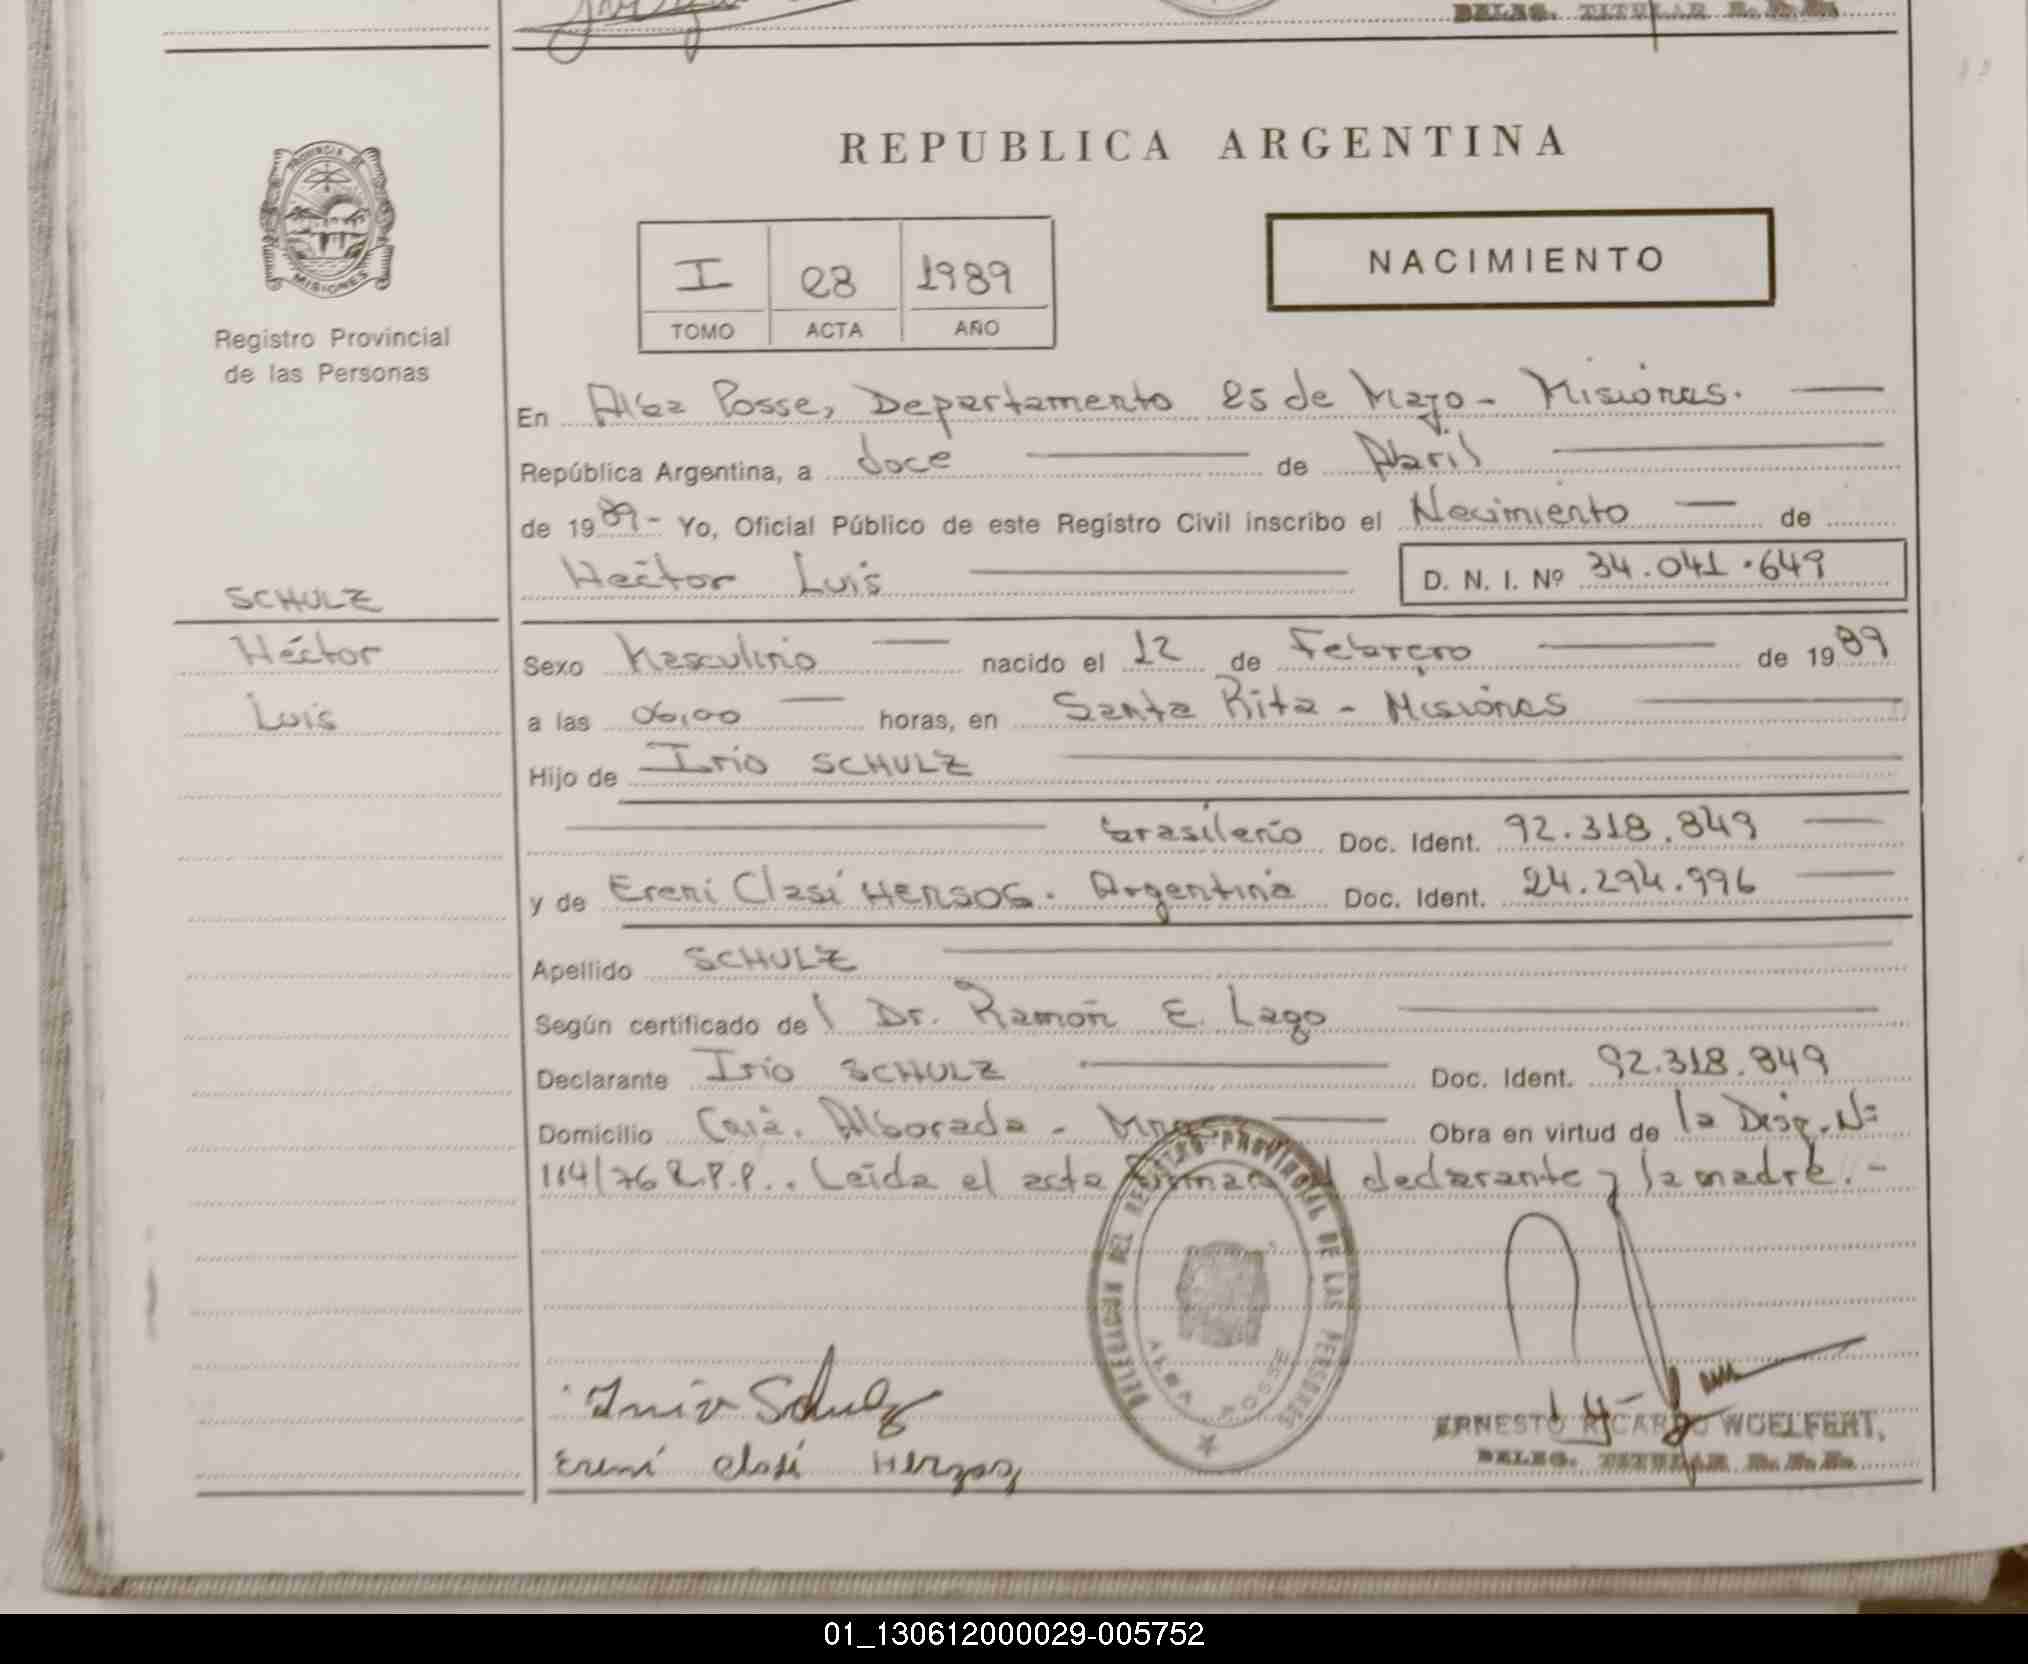 DELEG. TITULAR R.P.P.
REPUBLICA ARGENTINA
PROVINCIA DE
MISIONES
Registro Provincial
de las Personas
I 28 1989
TOMO ACTA AÑO
NACIMIENTO
En Alba Posse, Departamento 25 de Mayo - Misiones.
República Argentina, a doce de Abril
de 1989- Yo, Oficial Público de este Registro Civil inscribo el Nacimiento de
Hector Luis D. N. I. Nº 34.041.649
SCHULZ
Héctor
Luis
Sexo Masculino nacido el 12 de Febrero de 1989
a las 06,00 horas, en Santa Rita - Misiones
Hijo de Irio SCHULZ
brasilerio Doc. Ident. 92.318.849
y de Ereni Clasi HERZOG. Argentina Doc. Ident. 24.294.996
Apellido SCHULZ
Según certificado del Dr. Ramón E. Lago
Declarante Irio SCHULZ Doc. Ident. 92.318.849
Domicilio Cnia. Alborada - Mnes Obra en virtud de la Disp. Nº
114/76 R.P.P.. Leída el acta firman el declarante y la madre. -
DELEGACION DEL REGISTRO PROVINCIAL DE LAS PERSONAS
ALBA POSSE
Irio Schulz
Ereni clasi Herzog
ERNESTO RICARDO WOELFERT,
DELEG. TITULAR R.P.P.
01_130612000029-005752